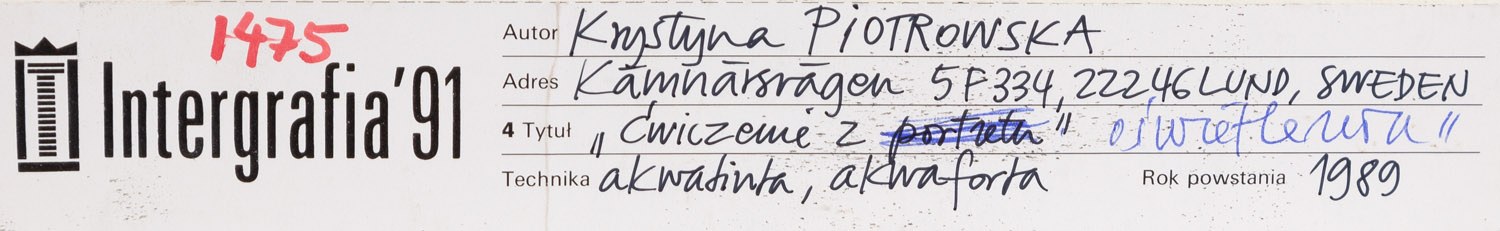 1475
Intergrafia'91
Autor Krystyna PiOTROWSKA
Adres Kämnärsvägen 5F334, 22246 LUND, SWEDEN
4 Tytuł „Ćwiczenie z portretu" oświetlenia"
Technika akwatinta, akwaforta Rok powstania 1989